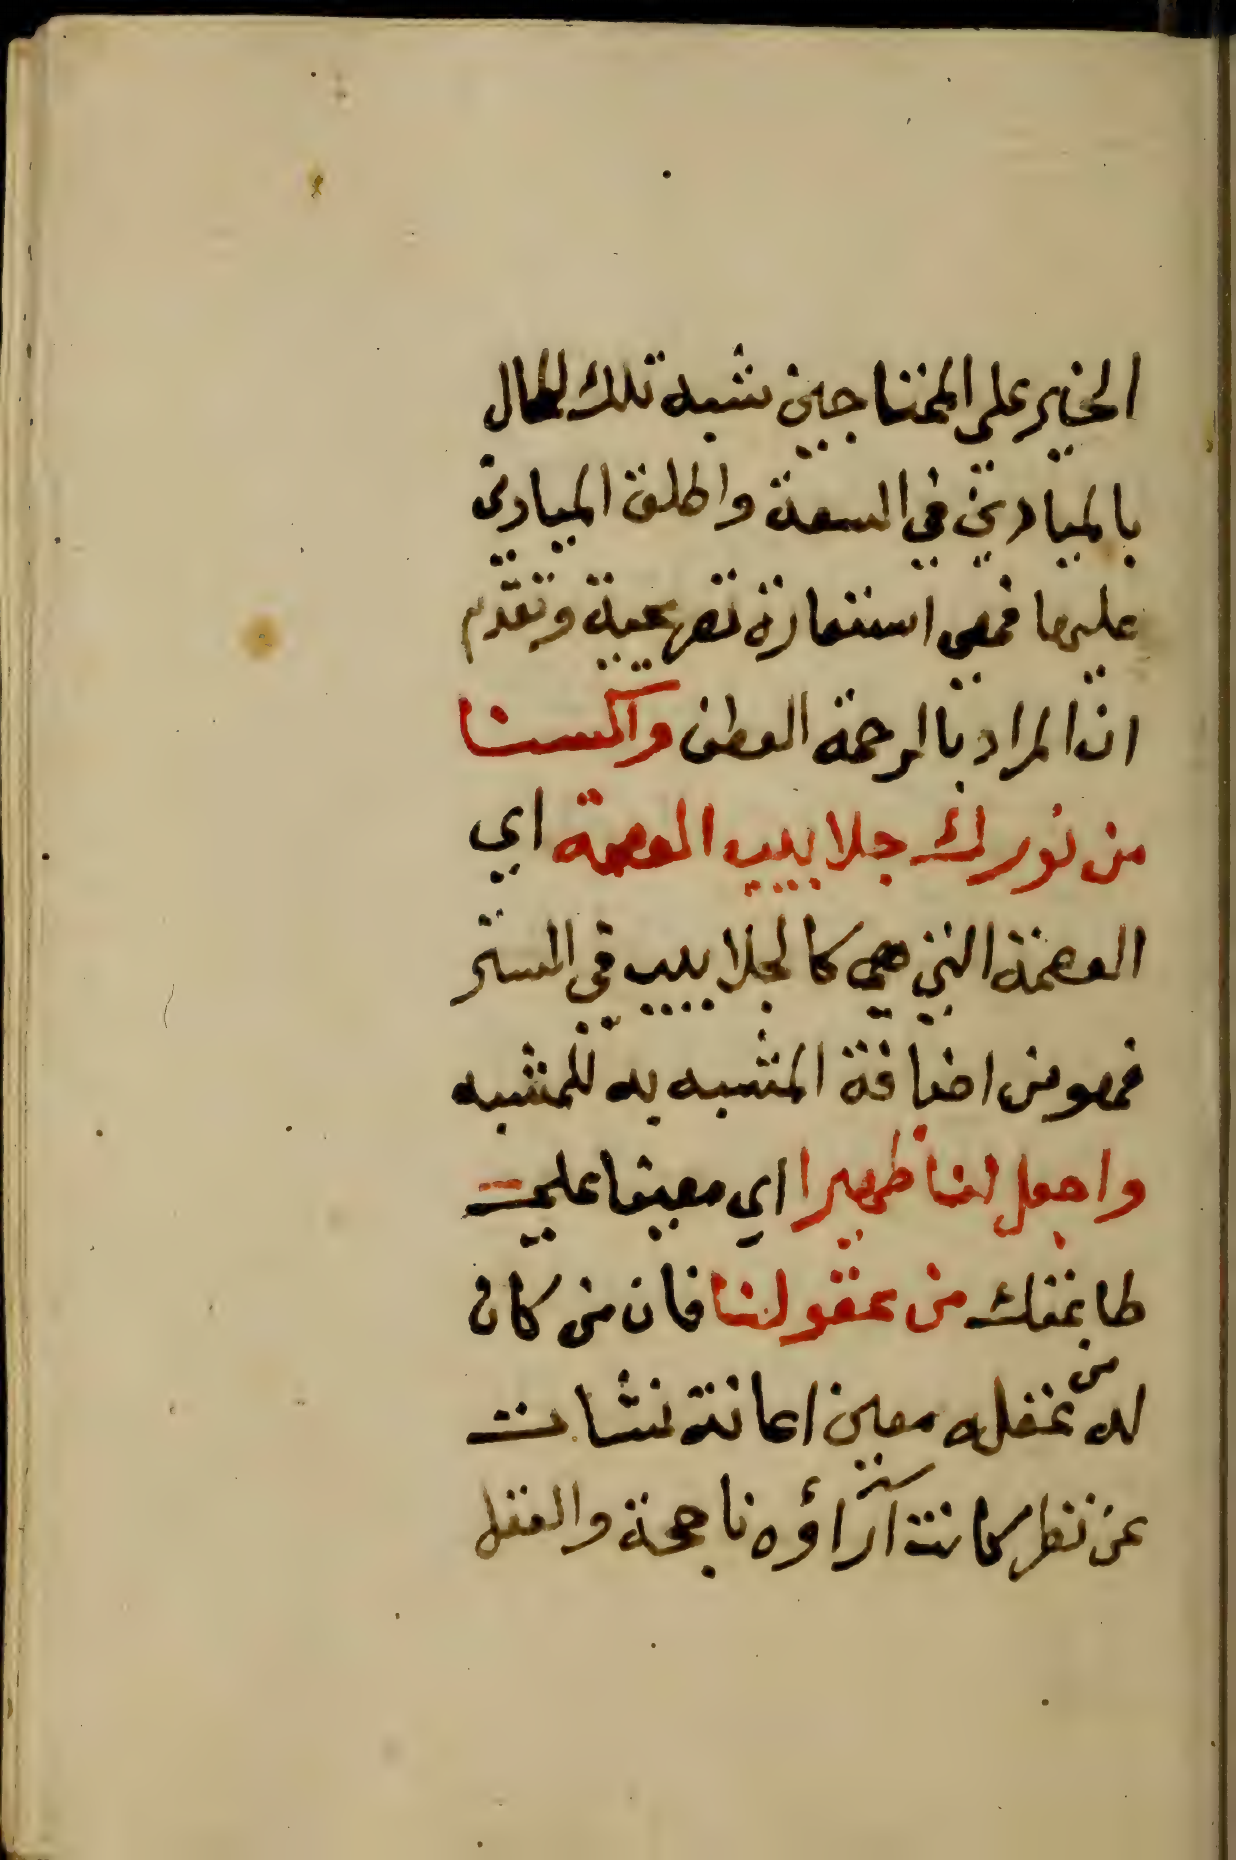 الخير على المحتاجين شبه تلك المحال
بالميادين في السعة واطلق الميادين
عليها فهي استعارة تصريحية وتقدم
ان المراد بالرحمة العطف واكسنا
من نورك جلابيب العصمة اي
العصمة التي هي كالجلابيب في الستر
فهو من اضافة المشبه به للمشبه
واجعل لنا ظهيرا اي معينا على
طاعتك من عقولنا فان من كان
له من عقله معين اعانة نشات
عن نظر كانت آراؤه ناجحة والعقل